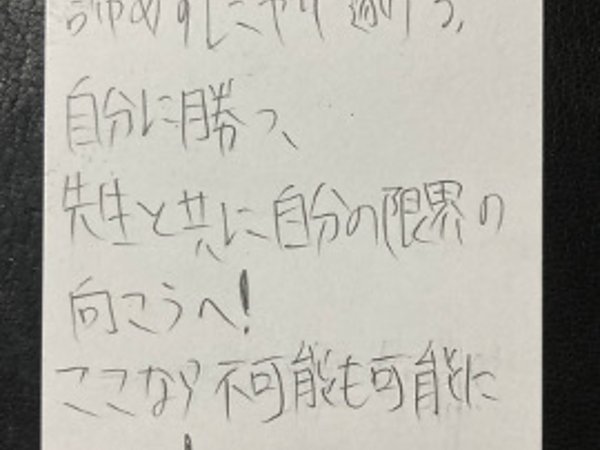 諦めずにやり通す、
自分に勝つ、
先生と共に自分の限界の
向こうへ!
ここなら不可能も可能に
!